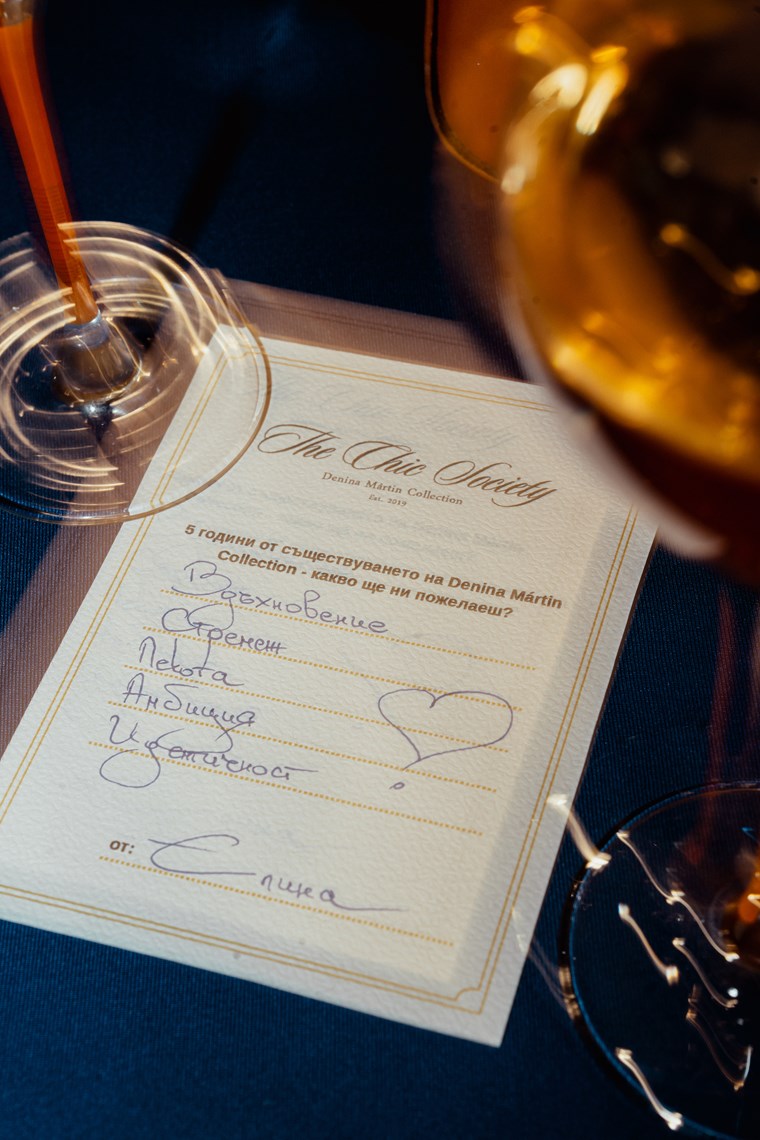 The Chic Society
Denina Mártin Collection
Est. 2019
5 години от съществуването на Denina Mártin
Collection - какво ще ни пожелаеш?
Вдъхновение
Стремеж
Лекота
Амбиция
Идентичност
от: Елина